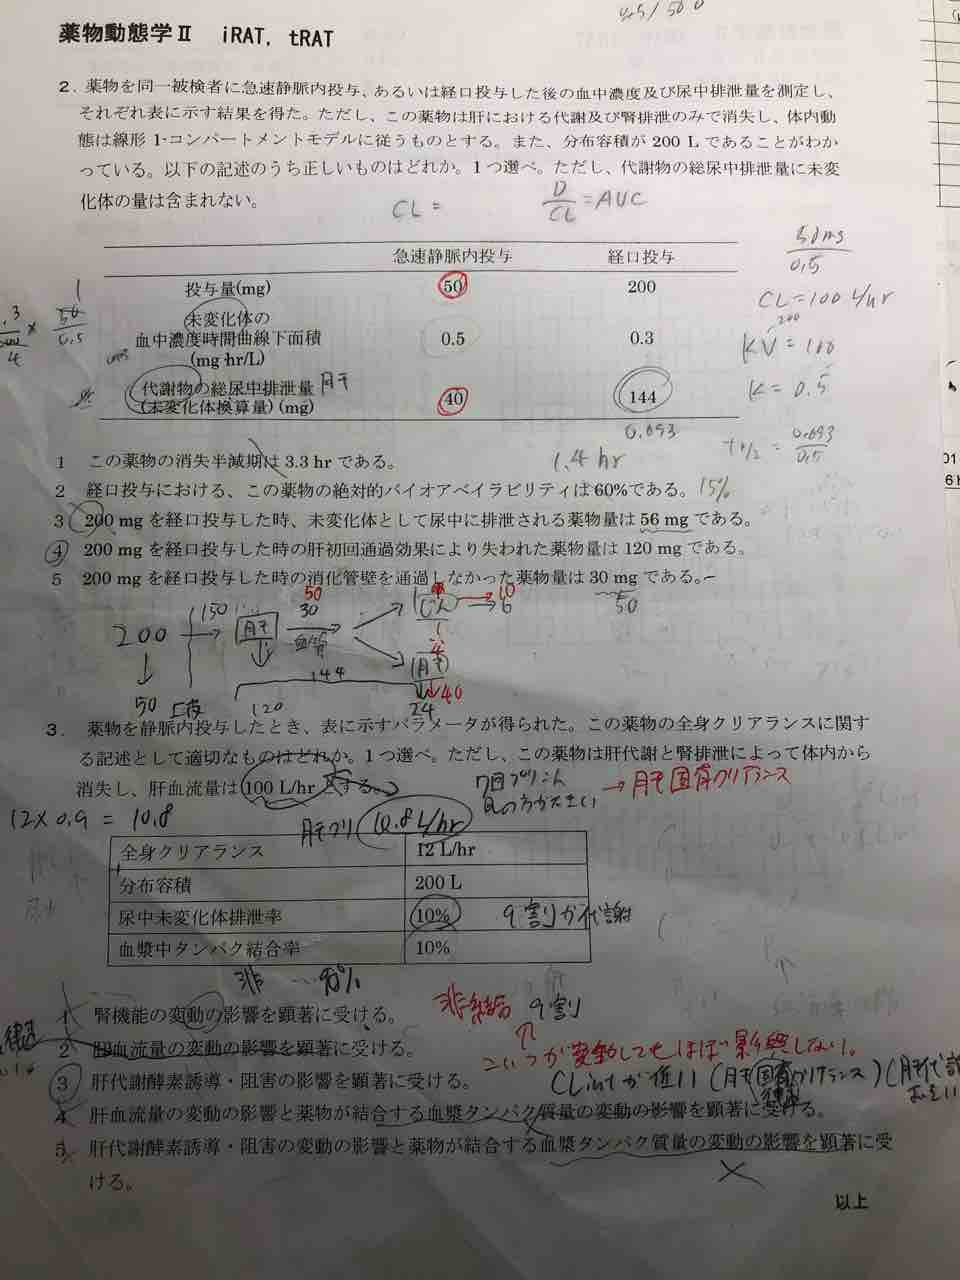 45/50.0
薬物動態学Ⅱ iRAT, tRAT
2. 薬物を同一被検者に急速静脈内投与、あるいは経口投与した後の血中濃度及び尿中排泄量を測定し、
それぞれ表に示す結果を得た。ただし、この薬物は肝における代謝及び腎排泄のみで消失し、体内動
態は線形 1-コンパートメントモデルに従うものとする。また、分布容積が 200 L であることがわか
っている。以下の記述のうち正しいものはどれか。1 つ選べ。ただし、代謝物の総尿中排泄量に未変
化体の量は含まれない。
CL = D/CL = AUC
50mg/0.5
急速静脈内投与 経口投与
投与量(mg) 50 200
CL=100 L/hr
未変化体の
血中濃度時間曲線下面積 0.5 0.3
(mg·hr/L)
200
KV = 100
K = 0.5
代謝物の総尿中排泄量 肝
(未変化体換算量) (mg) 40 144
0.693
t1/2 = 0.693/0.5
1 この薬物の消失半減期は 3.3 hr である。 1.4 hr
2 経口投与における、この薬物の絶対的バイオアベイラビリティは 60%である。 15%
3 200 mg を経口投与した時、未変化体として尿中に排泄される薬物量は 56 mg である。
4 200 mg を経口投与した時の肝初回通過効果により失われた薬物量は 120 mg である。
5 200 mg を経口投与した時の消化管壁を通過しなかった薬物量は 30 mg である。
50
200 150 肝 50 30 血管 じん 10 6
1
4
144 肝 40
50 120 24
3. 薬物を静脈内投与したとき、表に示すパラメータが得られた。この薬物の全身クリアランスに関す
る記述として適切なものはどれか。1 つ選べ。ただし、この薬物は肝代謝と腎排泄によって体内から
消失し、肝血流量は 100 L/hr とする。
Qの方が大きい → 肝固有クリアランス
12×0.9 = 10.8
肝クリ 10.8 L/hr
全身クリアランス 12 L/hr
分布容積 200 L
尿中未変化体排泄率 10% 9割が代謝
血漿中タンパク結合率 10%
非 … 90%
1 腎機能の変動の影響を顕著に受ける。 非結合 9割
2 肝血流量の変動の影響を顕著に受ける。 こいつが変動してもほぼ影響しない。
3 肝代謝酵素誘導・阻害の影響を顕著に受ける。 CLintが低い (肝固有クリアランス)
4 肝血流量の変動の影響と薬物が結合する血漿タンパク質量の変動の影響を顕著に受ける。
5 肝代謝酵素誘導・阻害の変動の影響と薬物が結合する血漿タンパク質量の変動の影響を顕著に受
ける。
以上